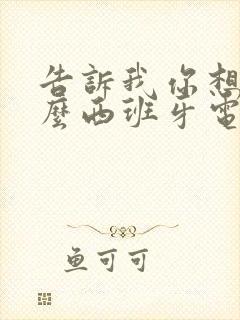 告訴我 你想
麼西班牙電
鱼可可